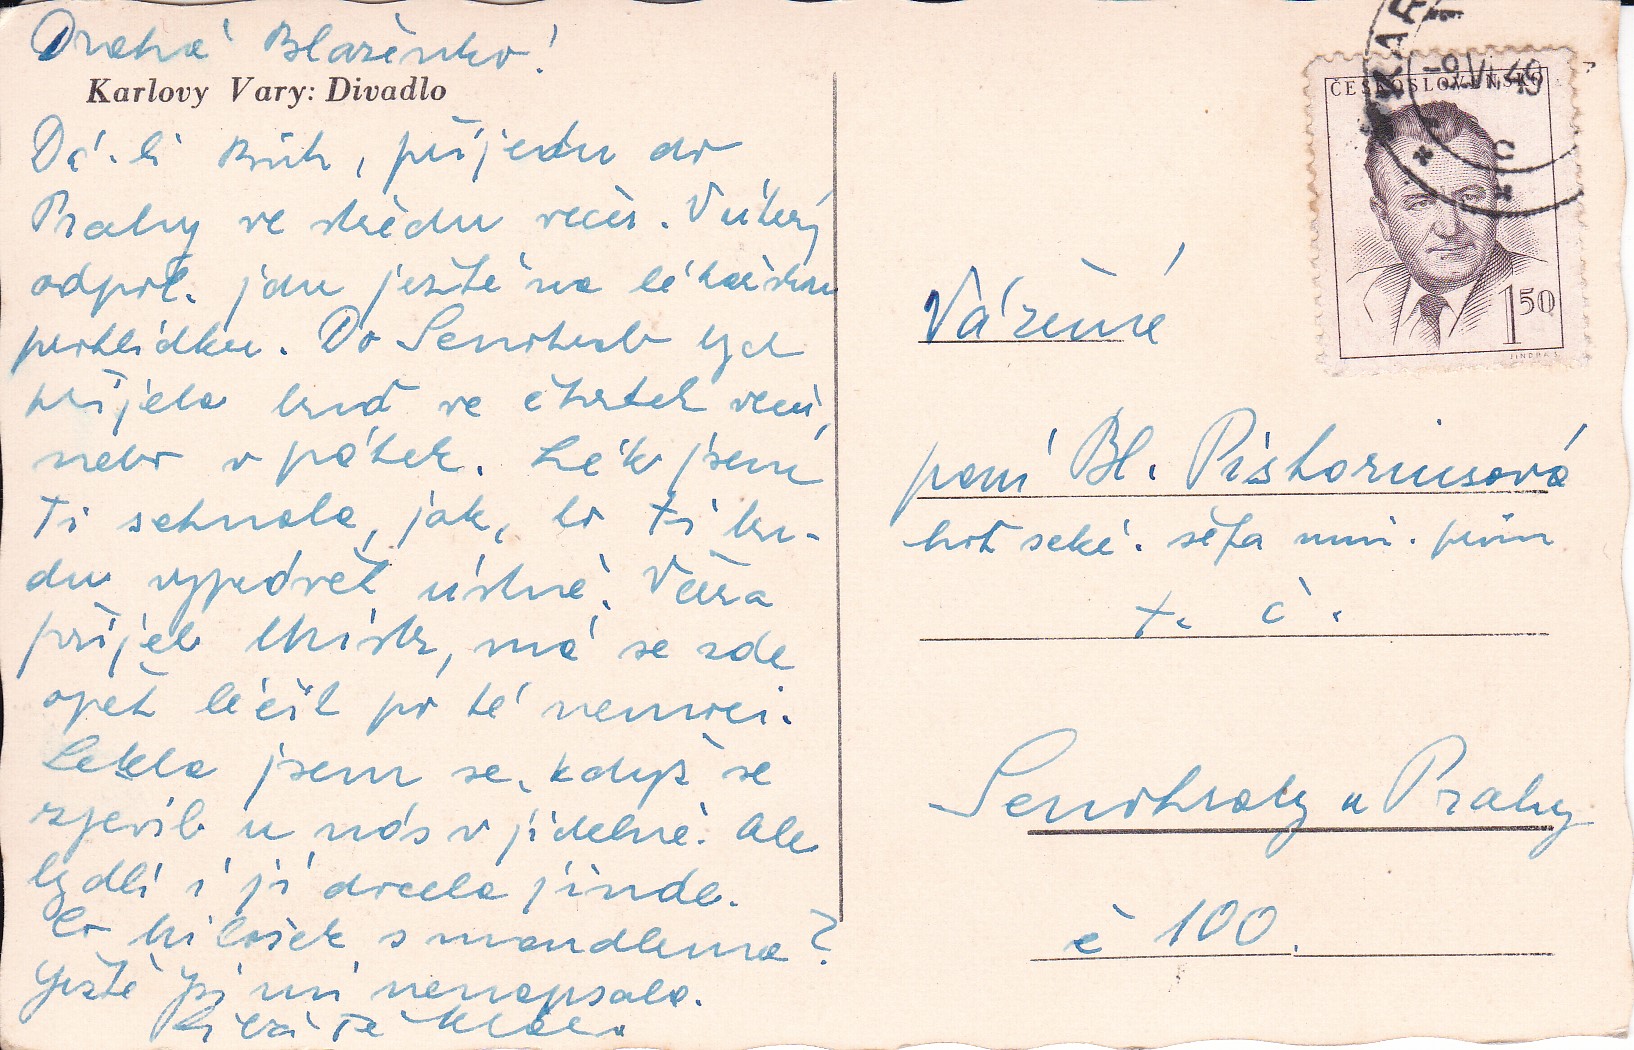 Drahá Blaženko!
Karlovy Vary: Divadlo
Dá-li Bůh, přijedu do
Prahy ve středu večer. V úterý
odpol. jdu ještě na lékařskou
prohlídku. Do Senohrab bych
přijela buď ve čtvrtek večer,
nebo v pátek. Lék jsem
Ti sehnala, jak, to Ti bu-
du vypravět ústně. Včera
přijel Mistr, má se zde
opět léčit po té nemoci.
Lekla jsem se, když se
zjevil u nás v jídelně. Ale
bydlí i jí docela jinde.
Co Milošek s mandlema?
Ještě jsi mi nenapsala.
Líbá Tě
ČESKOSLOVENSKO
1 50
JINDRA S.
KAR
-9.VI.49
Vážená
paní Bl. Pistoriusová
choť sekč. šéfa min. prům
t. č.
Senohraby u Prahy
č 100.